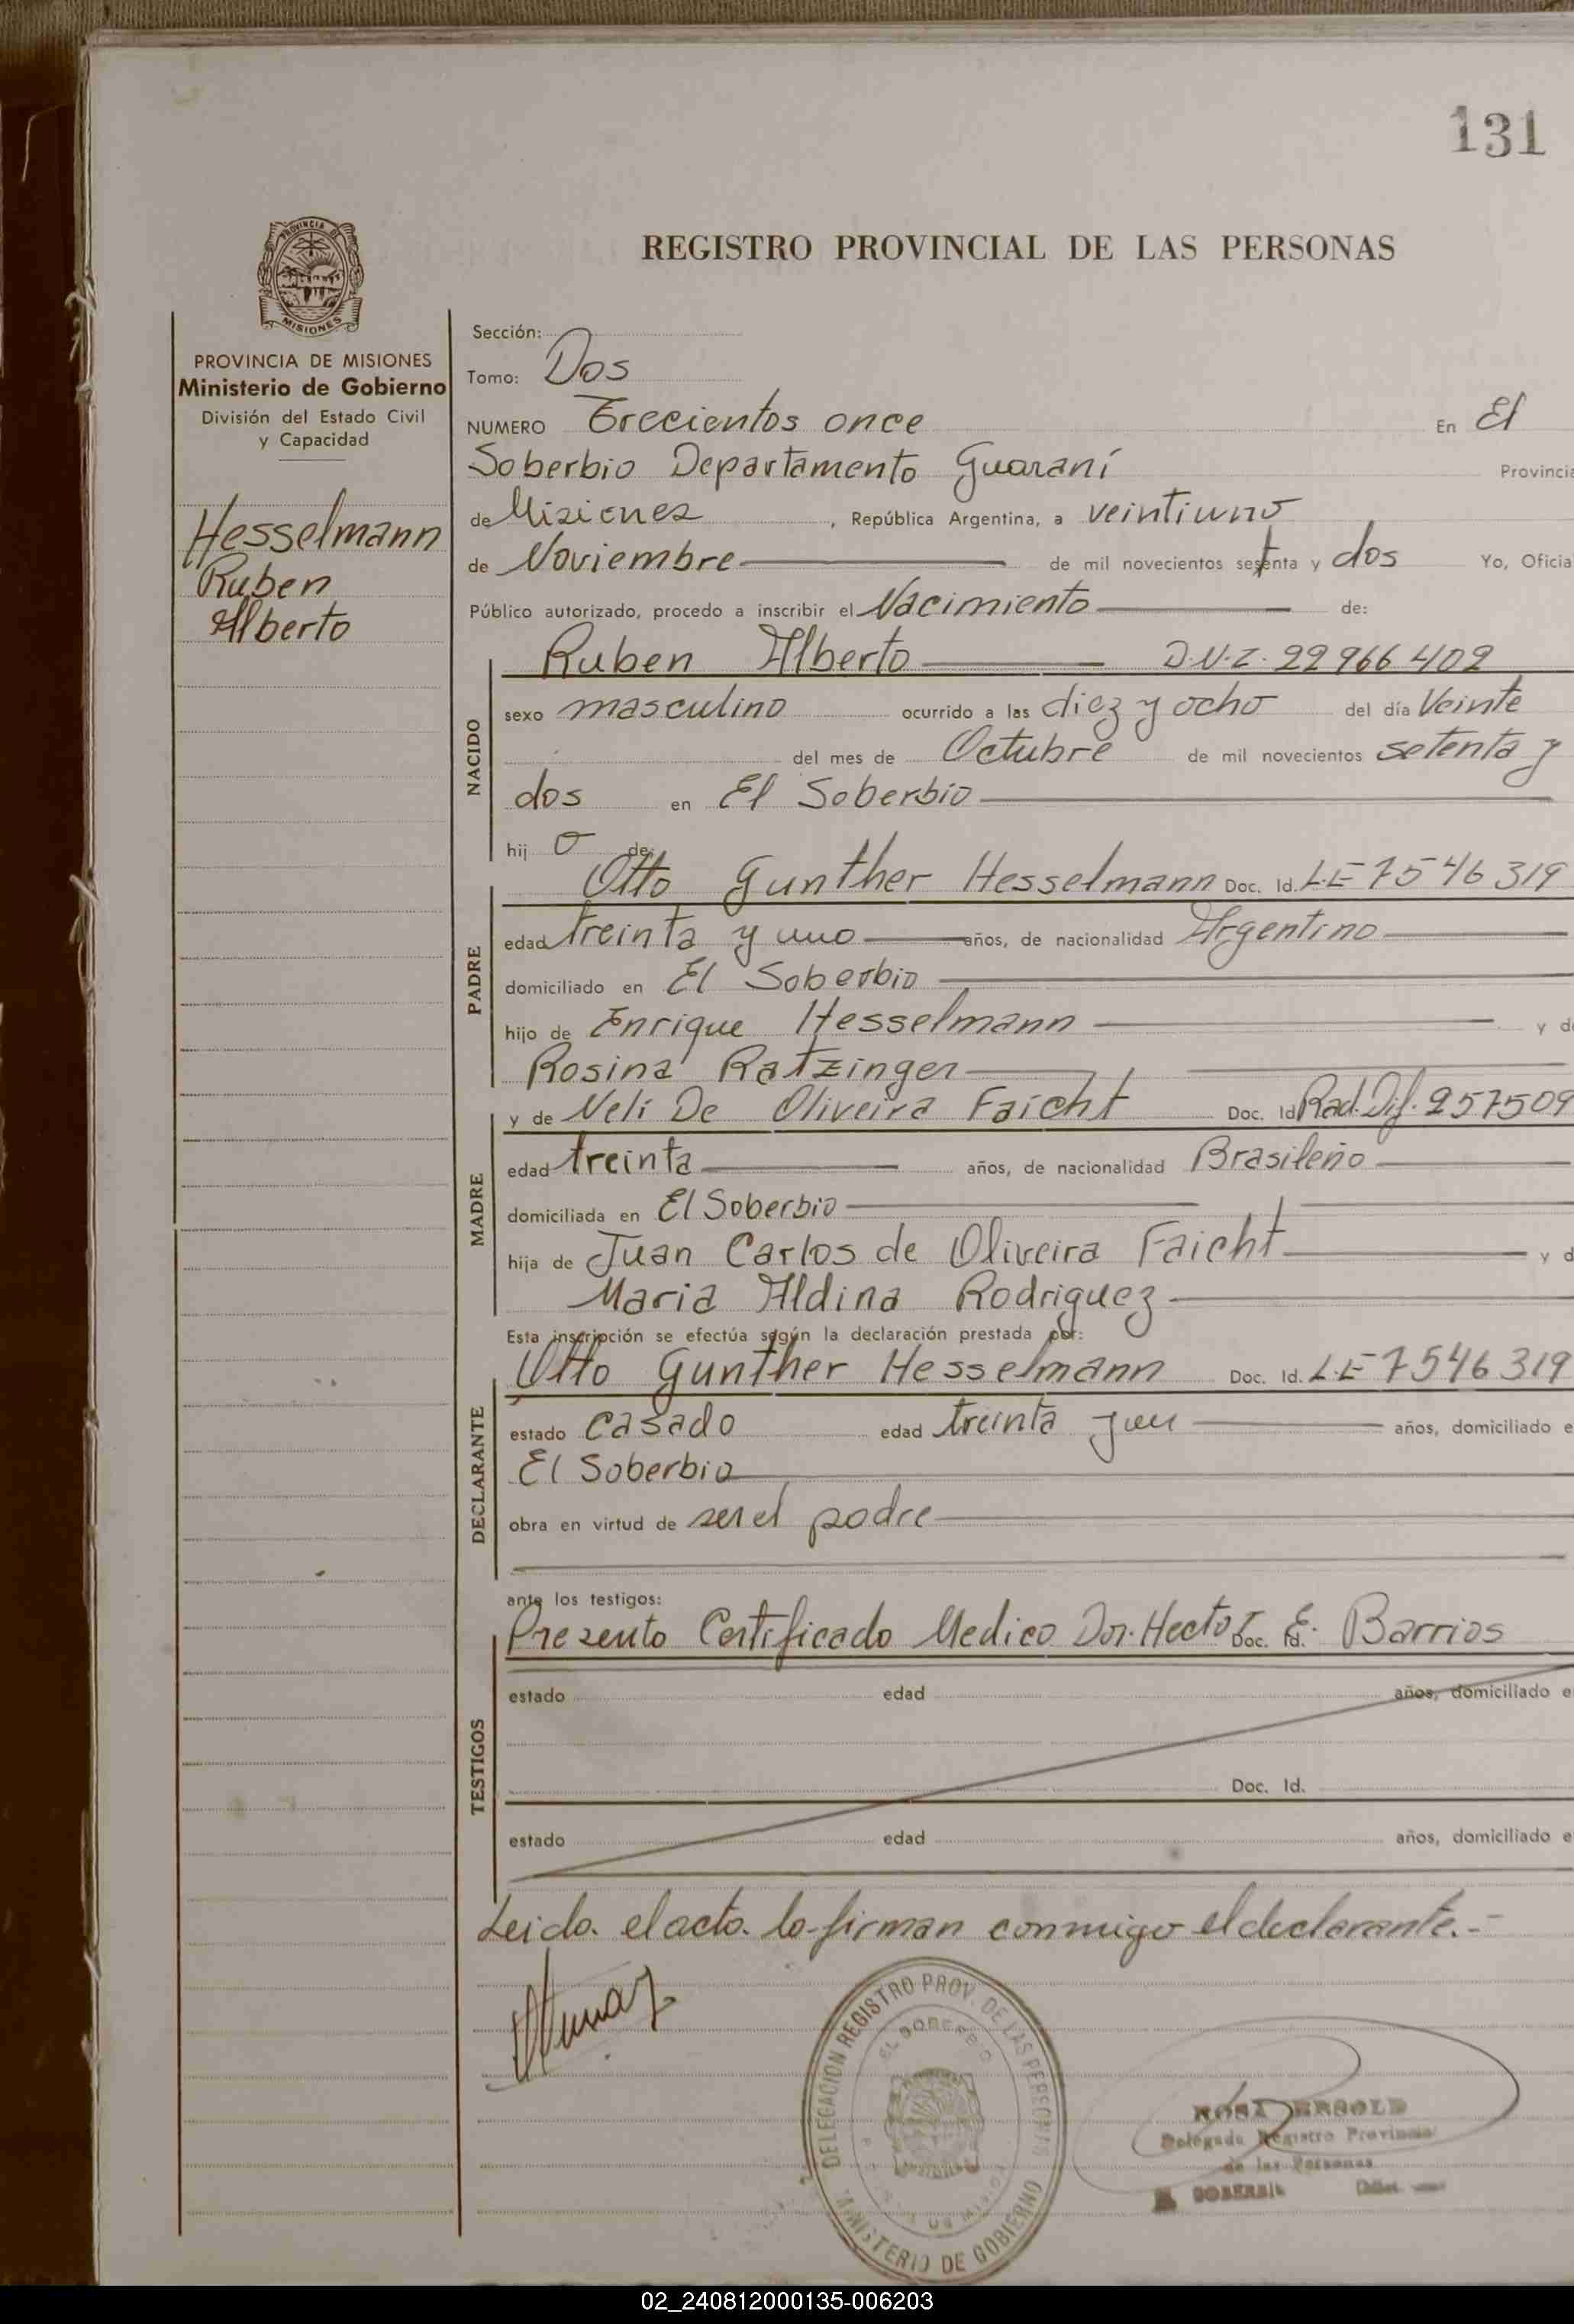 131
REGISTRO PROVINCIAL DE LAS PERSONAS
PROVINCIA DE
MISIONES
PROVINCIA DE MISIONES
Ministerio de Gobierno
División del Estado Civil
y Capacidad
Hesselmann
Ruben
Alberto
Sección:
Tomo: Dos
NUMERO Trecientos once En El
Soberbio Departamento Guaraní Provincia
de Misiones, República Argentina, a veintiuno
de Noviembre de mil novecientos setenta y dos Yo, Oficia
Público autorizado, procedo a inscribir el Nacimiento de:
NACIDO
Ruben Alberto D.N.I. 22966402
sexo masculino ocurrido a las diez y ocho del día Veinte
del mes de Octubre de mil novecientos setenta y
dos en El Soberbio
hij o de
PADRE
Otto Gunther Hesselmann Doc. Id. L.E 7546319
edad treinta y uno años, de nacionalidad Argentino
domiciliado en El Soberbio
hijo de Enrique Hesselmann y d
Rosina Ratzinger
MADRE
y de Neli De Oliveira Faicht Doc. Id Rad. Dif. 257509
edad treinta años, de nacionalidad Brasileño
domiciliada en El Soberbio
hija de Juan Carlos de Oliveira Faicht y d
Maria Aldina Rodriguez
Esta inscripción se efectúa según la declaración prestada por:
DECLARANTE
Otto Gunther Hesselmann Doc. Id. L.E 7546319
estado casado edad treinta y un años, domiciliado e
El Soberbio
obra en virtud de ser el padre
ante los testigos:
TESTIGOS
Presento Certificado Medico Dor. Hector E. Barrios Doc. Id.
estado edad años, domiciliado e
Doc. Id.
estado edad años, domiciliado e
Leida el acta la firman conmigo el declarante.-
DELEGACION REGISTRO PROV. DE LAS PERSONAS
EL SOBERBIO
MINISTERIO DE GOBIERNO
Delegada Registro Provincial
de las Personas
SOBERBIO
02_240812000135-006203